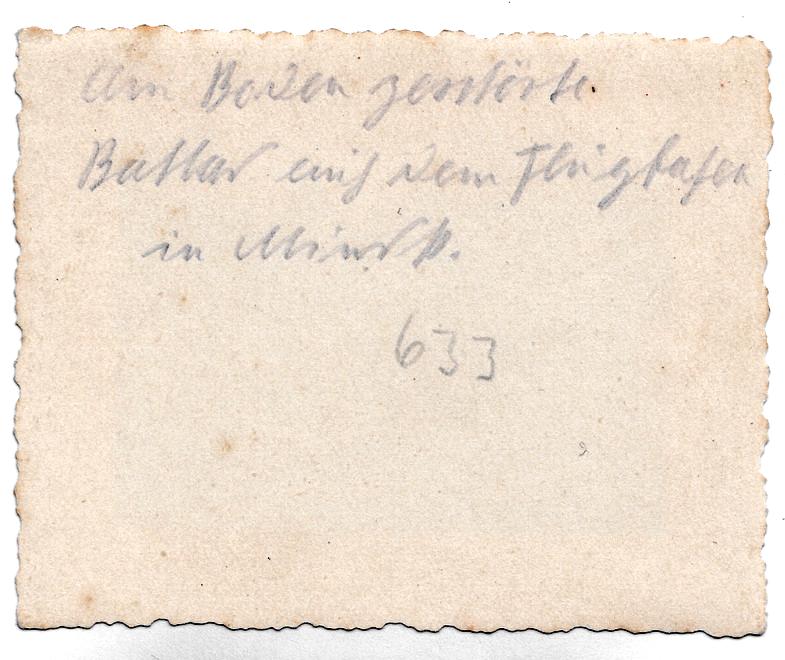 Am Boden zerstörte
auf dem Flughafen
in Minsk.
633